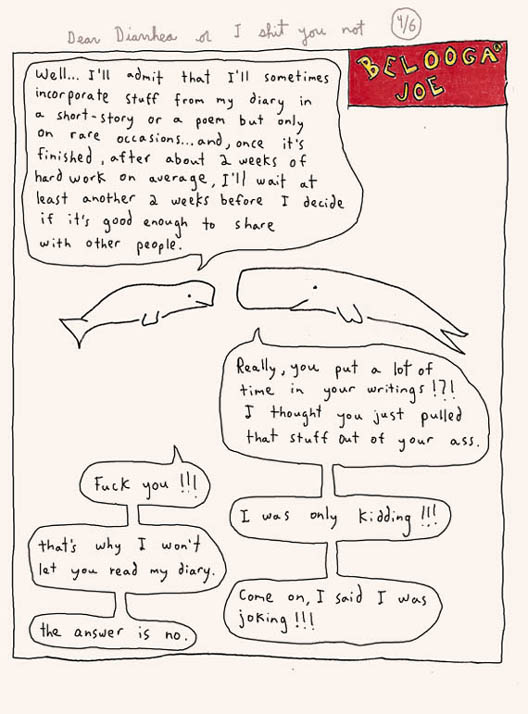 Dear Diarrhea or I shit you not 4/6
BELOOGA
JOE
Well... I'll admit that I'll sometimes
incorporate stuff from my diary in
a short-story or a poem but only
on rare occasions...and, once it's
finished, after about 2 weeks of
hard work on average, I'll wait at
least another 2 weeks before I decide
if it's good enough to share
with other people.
Really, you put a lot of
time in your writings !?!
I thought you just pulled
that stuff out of your ass.
Fuck you !!!
I was only kidding !!!
that's why I won't
let you read my diary.
Come on, I said I was
joking !!!
the answer is no.